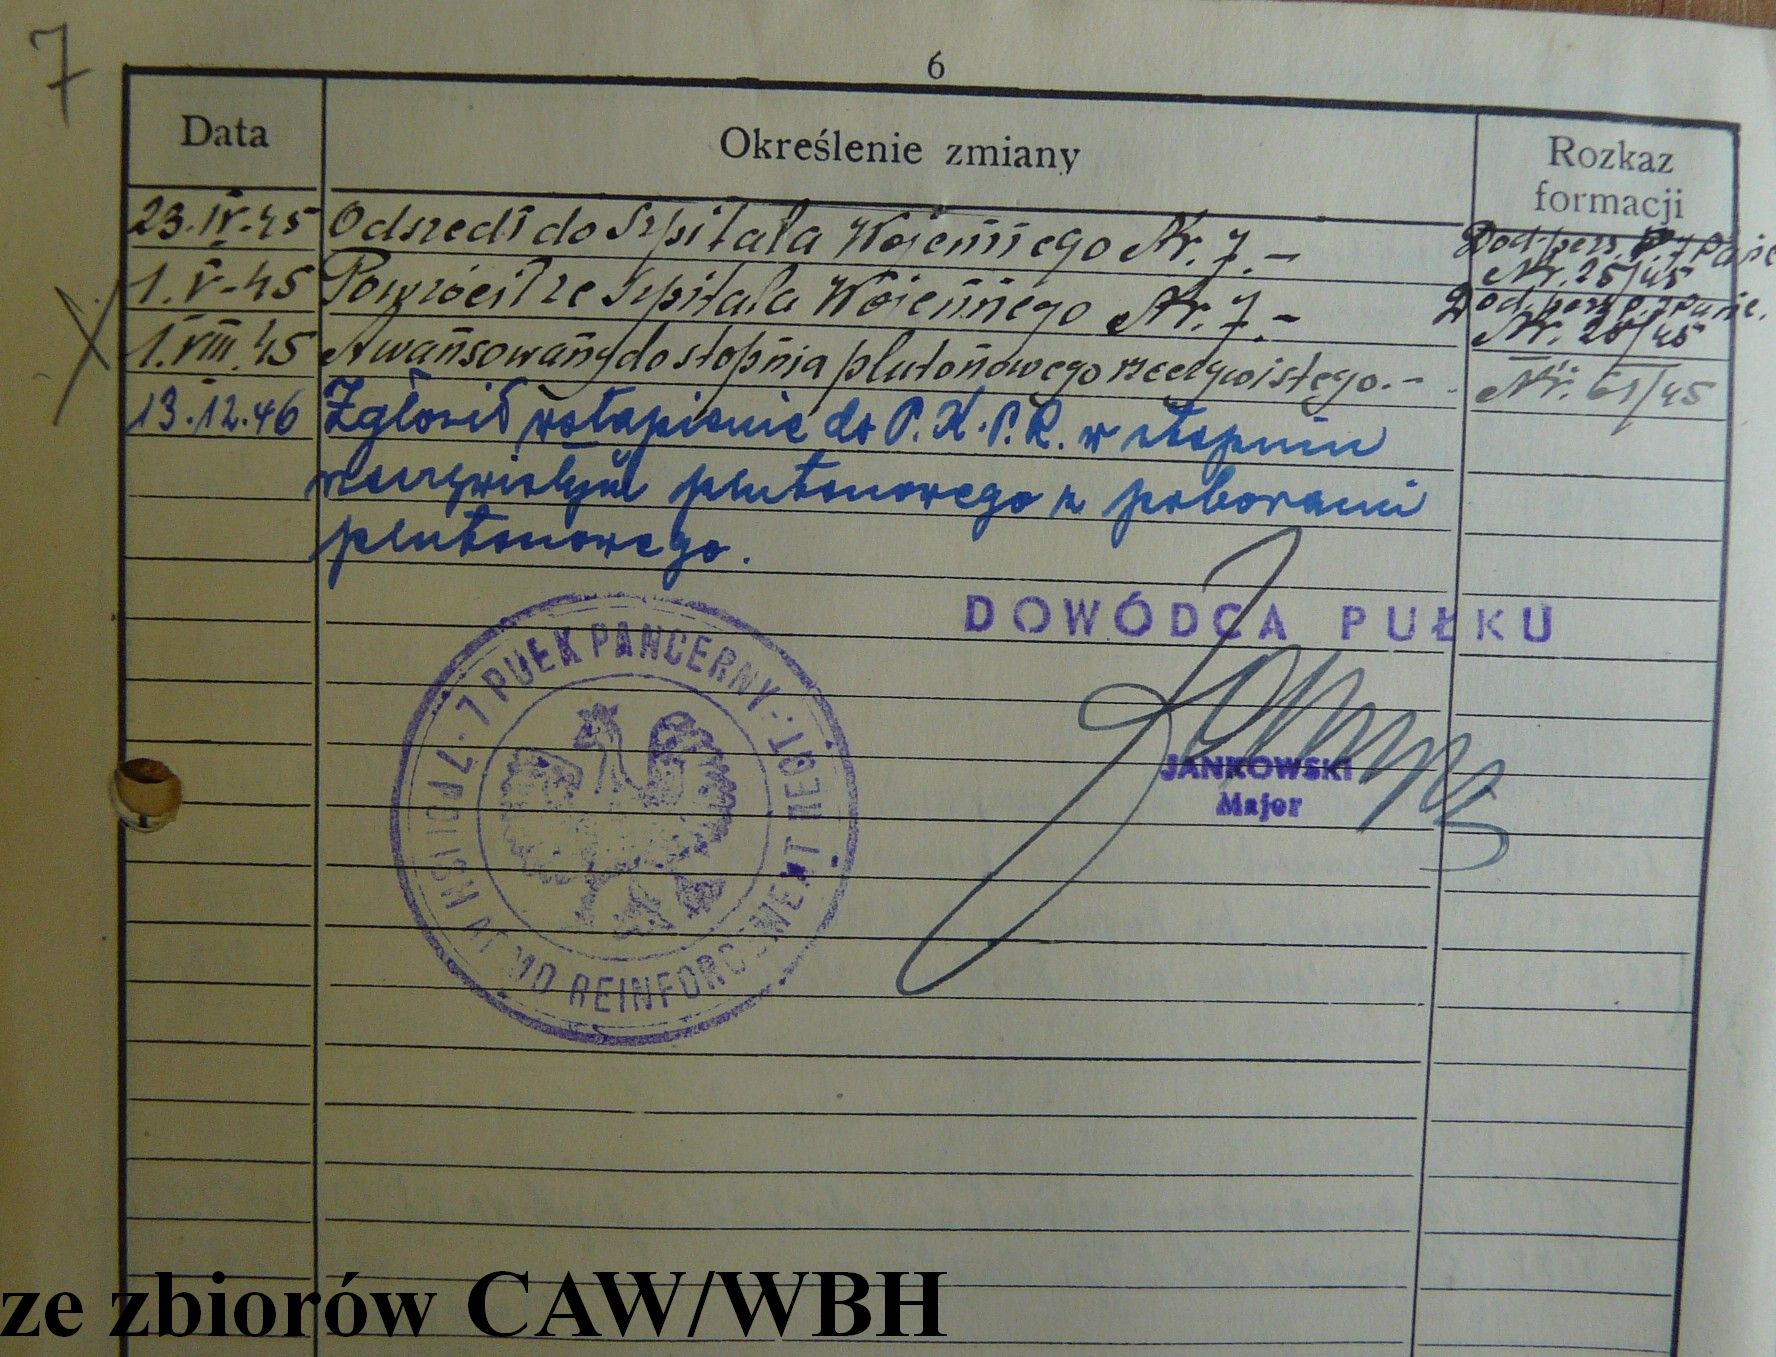 7
6
Data
Określenie zmiany
Rozkaz
formacji
23.IV.45 Odszedł do Szpitala Wojennego Nr. 7.-
Dod. pers. p. 7 Panc.
Nr. 25/45
1.V-45 Powrócił ze Szpitala Wojennego Nr. 7.-
Dod. pers. p. 7 Panc.
Nr. 28/45
1.VIII.45 Awansowany do stopnia plutonowego rzeczywistego.- Nr. 61/45
13.12.46 Zgłosił wstąpienie do P.K.P.R. w stopniu
rzeczywistym plutonowego z poborami
plutonowego.
DOWÓDCA PUŁKU
JANKOWSKI
Major
7 PUŁK PANCERNY
REINFORCEMENT REGT.
ze zbiorów CAW/WBH